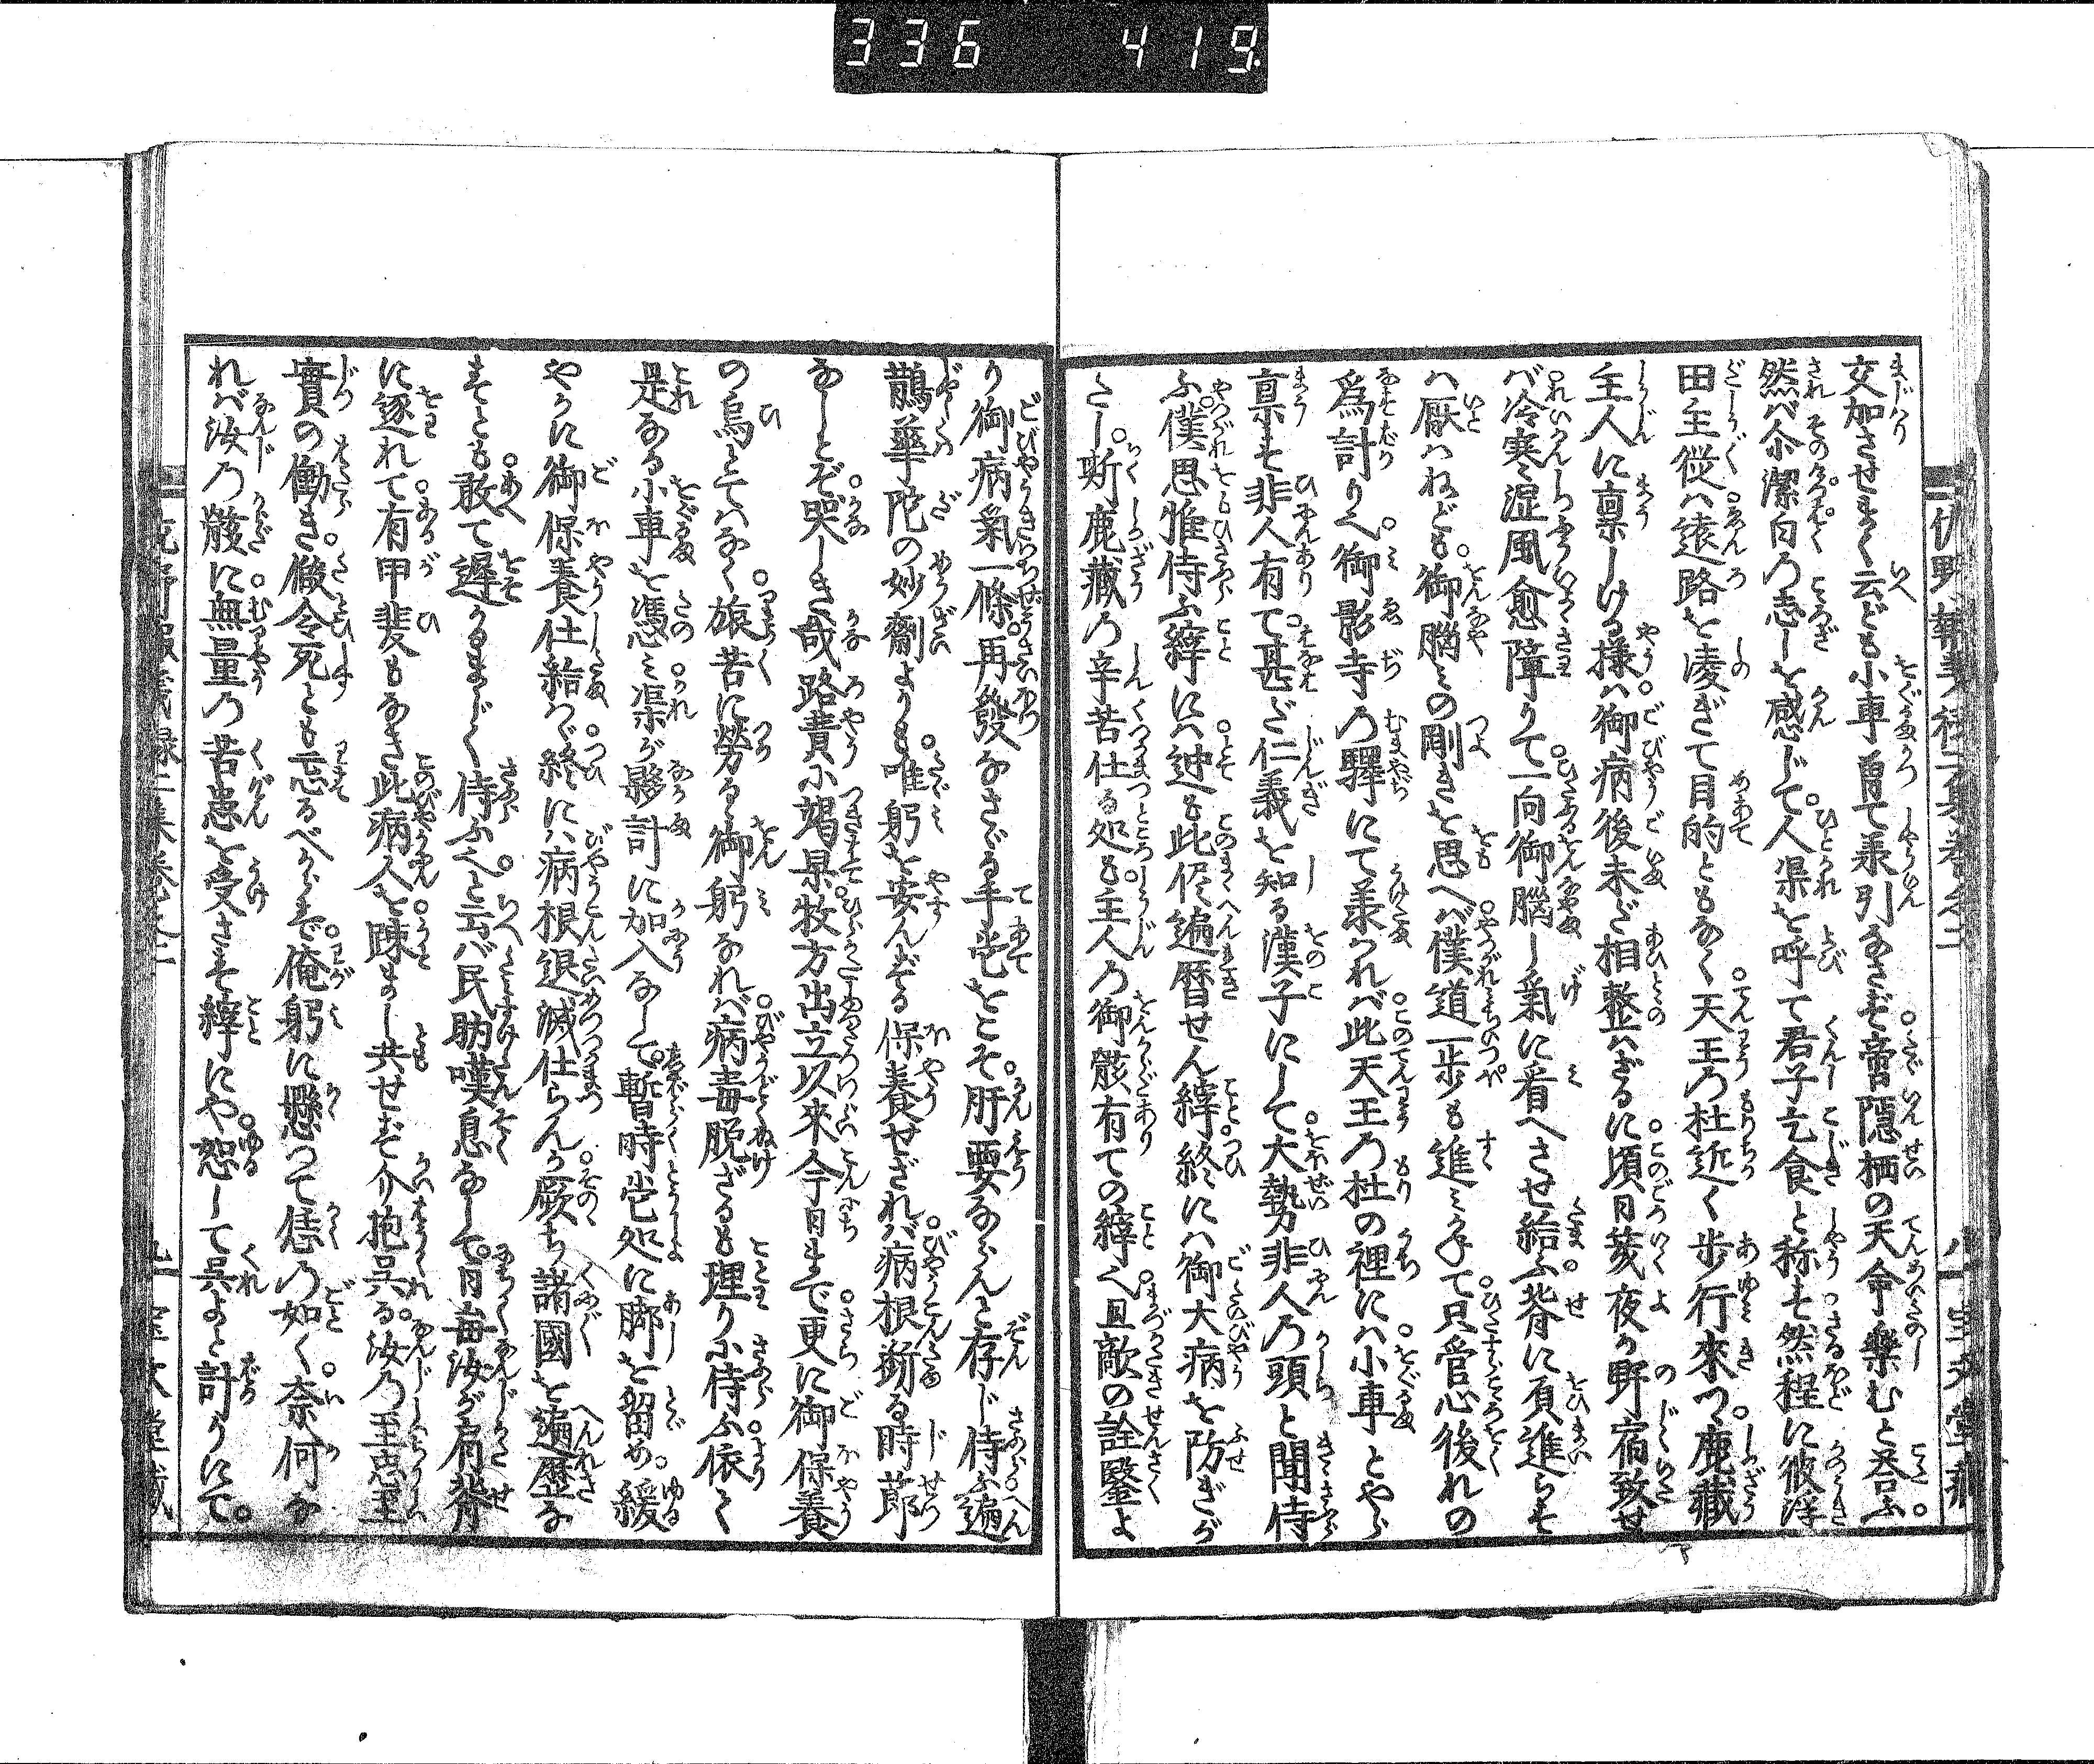 336 419
交加させまく云ども小車曽て承引なさず啻隠栖の天命樂むと答ふ。
然バ尒潔白の志しを感じて。人渠を呼て君子乞食と称す然程に彼浮
田主従ハ遠路を凌ぎて目的ともなく天王の杜近く歩行來つ。鹿藏
主人に稟しける様ハ御病後未だ相整ハざるに頃日茇夜か野宿致せ
バ冷寒湿風愈障りて一向御腦し氣に看へさせ給ふ背に負進らす
ハ厭ハねども御腦ミの剛きを思へバ僕道一歩も進ミかねて只管心後れの
為計りヘ御影寺の驛にて承れバ此天王の杜の裡にハ小車とやら
稟す非人有て甚だ仁義を知る漢子にして大勢非人の頭と聞侍
ふ僕思惟侍ふ縡にハ迚も此侭遍暦せん縡終にハ御大病を防ぎが
たし。斯鹿藏の辛苦仕る処も主人の御骸有ての縡ヘ且敵の詮鑿よ
り御病氣一條。再發なさゞる手當をこそ肝要ならんと存じ侍ふ遍
鵲華陀の妙劑よりも唯躬を安んぜる保養せざれバ病根斮る時莭
なしとぞ哭しき哉路費小竭果牧方出立以來今日まで更に御保養
の為とてハなく旅苦に勞る御躬なれバ病毒脱ざるも理り小侍ふ依て
是なる小車を憑ミ渠が夥計に加入なして暫時當処に脚を留め。緩
やかに御保養仕給ハゞ終にハ病根退滅仕らんか厥ち諸國を遍歴な
すとも敢て遅かるまじく侍ふヘと云バ民助嘆息なして。日毎汝が肩背
に逐れて有甲斐もなき此病人を疎まし共せず介抱呉る。汝の至忠
實の働き。假令死とも忘るべからず俺躬に懸つて恁の如く奈何な
れバ汝の骸に無量の苦患を受さす縡にや。恕して呉よと計りにて。